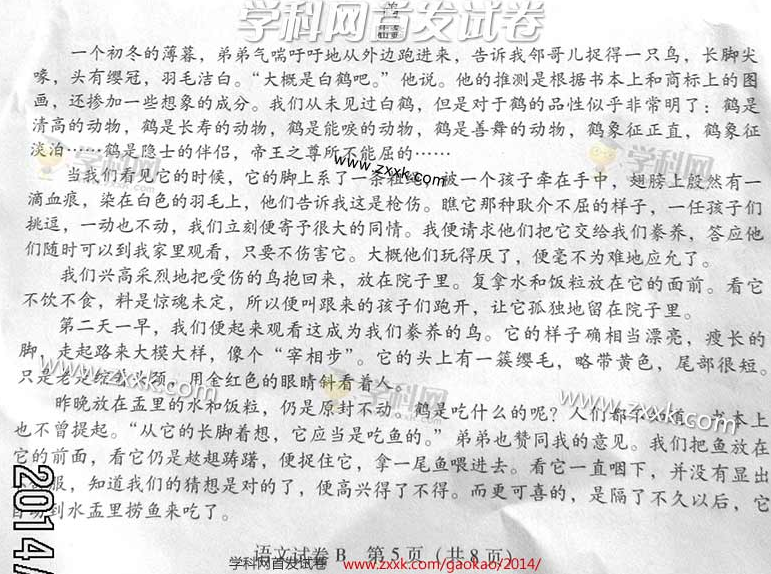 学科网首发试卷
一个初冬的薄暮，弟弟气喘吁吁地从外边跑进来，告诉我邻哥儿捉得一只鸟，长脚尖
喙，头有缨冠，羽毛洁白。“大概是白鹤吧。”他说。他的推测是根据书本上和商标上的图
画，还掺加一些想象的成分。我们从未见过白鹤，但是对于鹤的品性似乎非常明了：鹤是
清高的动物，鹤是长寿的动物，鹤是能唳的动物，鹤是善舞的动物，鹤象征正直，鹤象征
淡泊……鹤是隐士的伴侣，帝王之尊所不能屈的……
学科网
www.zxxk.com
学科网
当我们看见它的时候，它的脚上系了一条粗 被一个孩子牵在手中，翅膀上殷然有一
滴血痕，染在白色的羽毛上，他们告诉我这是枪伤。瞧它那种耿介不屈的样子，一任孩子们
挑逗，一动也不动，我们立刻便寄予很大的同情。我便请求他们把它交给我们豢养，答应他
们随时可以到我家里观看，只要不伤害它。大概他们玩得厌了，便毫不为难地应允了。
我们兴高采烈地把受伤的鸟抱回来，放在院子里。复拿水和饭粒放在它的面前。看它
不饮不食，料是惊魂未定，所以便叫跟来的孩子们跑开，让它孤独地留在院子里。
第二天一早，我们便起来观看这成为我们豢养的鸟。它的样子确相当漂亮，瘦长的
脚，走起路来大模大样，像个“宰相步”。它的头上有一簇缨毛，略带黄色，尾部很短。
只是老是 头颈，用金红色的眼睛斜看着人。
www.zxxk.com
学科网
www.zxxk.com
昨晚放在盂里的水和饭粒，仍是原封不动。鹤是吃什么的呢？人们都不 书本上
也不曾提起。“从它的长脚着想，它应当是吃鱼的。”弟弟也赞同我的意见。我们把鱼放在
它的前面，看它仍是趑趄踌躇，便捉住它，拿一尾鱼喂进去。看它一直咽下，并没有显出
服，知道我们的猜想是对的了，便高兴得了不得。而更可喜的，是隔了不久以后，它
自动到水盂里捞鱼来吃了。
2014/
语文试卷B 第5页（共8页）
学科网首发试卷 www.zxxk.com/gaokao/2014/